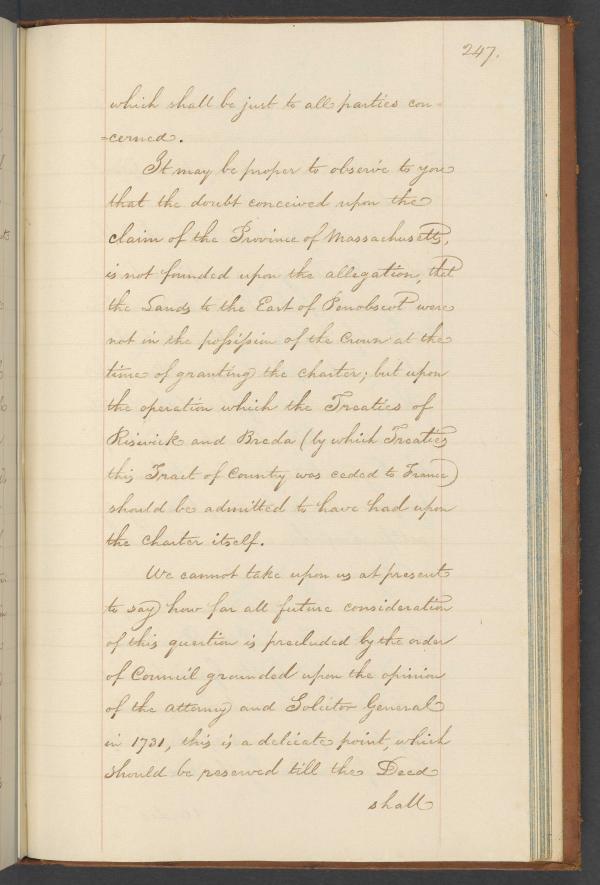 247.
which shall be just to all parties con-
=cerned.
It may be proper to observe to you
that the doubt conceived upon the
claim of the Province of Massachusetts,
is not founded upon the allegation, that
the Lands to the East of Penobscot were
not in the possession of the Crown at the
time of granting the charter; but upon
the operation which the Treaties of
Riswick and Breda (by which Treaties
this Tract of Country was ceded to France)
should be admitted to have had upon
the charter itself.
We cannot take upon us at present
to say how far all future consideration
of this question is precluded by the order
of Council grounded upon the opinion
of the attorney and Solicitor General
in 1731, this is a delicate point, which
should be reserved till the Deed
shall